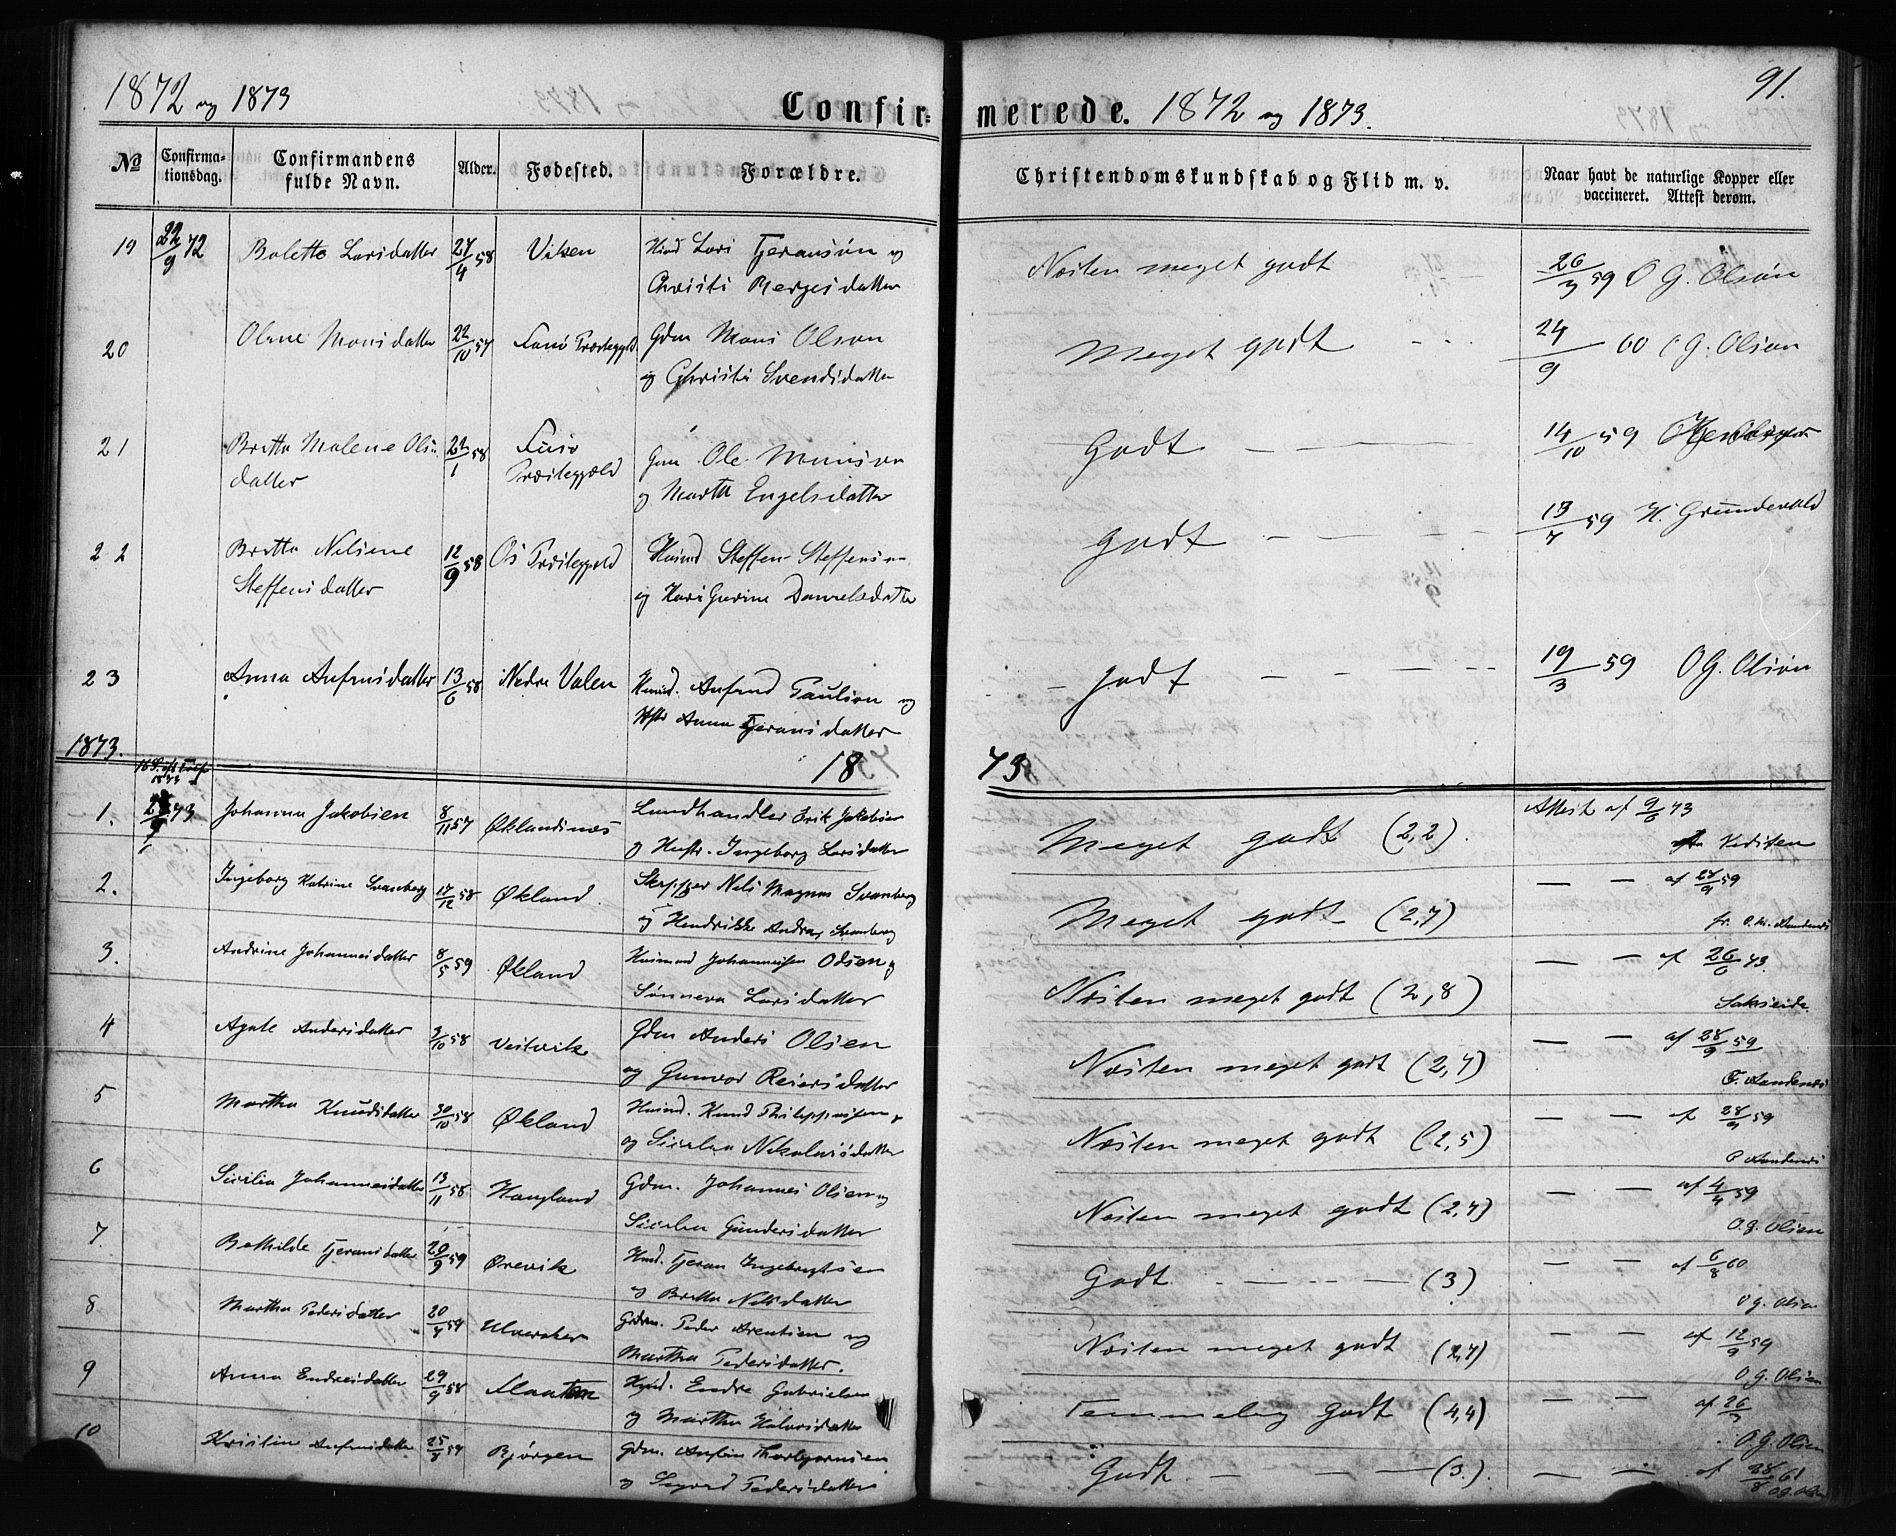 1872 og 1873
Confir-
merede. 1872 og 1873.
91.
No
Confirma-
tionsdag.
Confirmandens
fulde Navn.
Alder.
Fødested.
Forældre.
Christendomskundskab og Flid m. v.
Naar havt de naturlige Kopper eller
vaccineret. Attest derom.
19 22/9 72 Bolette Larsdatter 24/4 58 Viken Huusd Lars Tjeransön og
Christi Børgesdatter
Næsten meget godt 26/3 59 O G. Olsön
20 Olene Monsdatter 22/10 57 Fusö Præstegjeld. Gdm Mons Olson
og Christi Svendsdatter
Meget godt 24/9 60 O G. Olson
21 Britta Malene Ols- 22/1 58 Fusö Gdm Ole Monson
datter Præstegjæld og Marta Engelsdatter
Godt 14/10 59
22 Britta Nilsine 12/9 58 Os Præstegjeld Huusmd Steffen Steffenson
Steffensdatter og Kari Gurine Danielsdatter
Godt 13/7 59 H. Grundevald
23 Anna Anfensdatter 13/6 58 Nedre Valen Huusmd. Anfend Paulson og
Hstr Anna Tjeransdatter
godt 19/3 59 O G. Olson
1873.
18 73
1. 73 Johanna Jakobsen 8/11 57 Øklandsnes Landhandler Erik Jakobsen
og Hustr. Ingeborg Larsdatter
Meget godt (2,2). Attest af 9/6 73
2. Ingeborg Katrine Svaneberg 17/12 58 Økland Skipper Nils Magnus Svanberg
og Hendrikke Andrea Svanberg
Meget godt (2,7) — — af 59
3. Andrine Johannesdatter 8/5 59 Økland Huusmand Johannesen Odsen og
Sönneva Larsdatter
Næsten meget godt (2,8) — — af 26/6 73.
4 Agate Andersdatter 3/10 58 Veitvik Gdm Anders Olsen
og Gunvor Reiersdatter
Næsten meget godt (2,7) — — af 28/9 59
5 Martha Knudsdatter 30/10 58 Økland Huusmd. Knud Philippusen
og Sicilia Nikolaisdatter
Næsten meget godt (2,5) — — af 28/9 59
6 Sicilia Johannesdatter 13/11 58 Haugland Gdm. Johannes Olsen og
Sicilia Gundersdatter
Næsten meget godt (2,7) — — af 4/4 59
O.G. Olsen
7. Bothilde Tjeransdatter 29/9 59 Ørevik Hmd. Tjeran Ingebregtsen
og Britta Nilsdatter
Godt (3) — — af 6/8 60
O G. Olsen
8 Martha Pedersdatter 20/4 59 Ulveraker Grdm. Peder Arentsen og
Martha Pedersdatter.
Næsten meget godt (2,7) — — af 12/9 59
O G. Olsen
9 Anna Endresdatter 29/9 58 Hmd. Endre Gabrielsen
og Martha Halvorsdatter
Temmelig Godt (4,4) — — af
O.G. Olsen
10 Kristine Anfensdatter 59 Bjørgen Gdm. Anfin Thorbjørnsen
og Sigrid Pedersdatter
Godt (3.). — — af 28/8 61
O G. Olsen